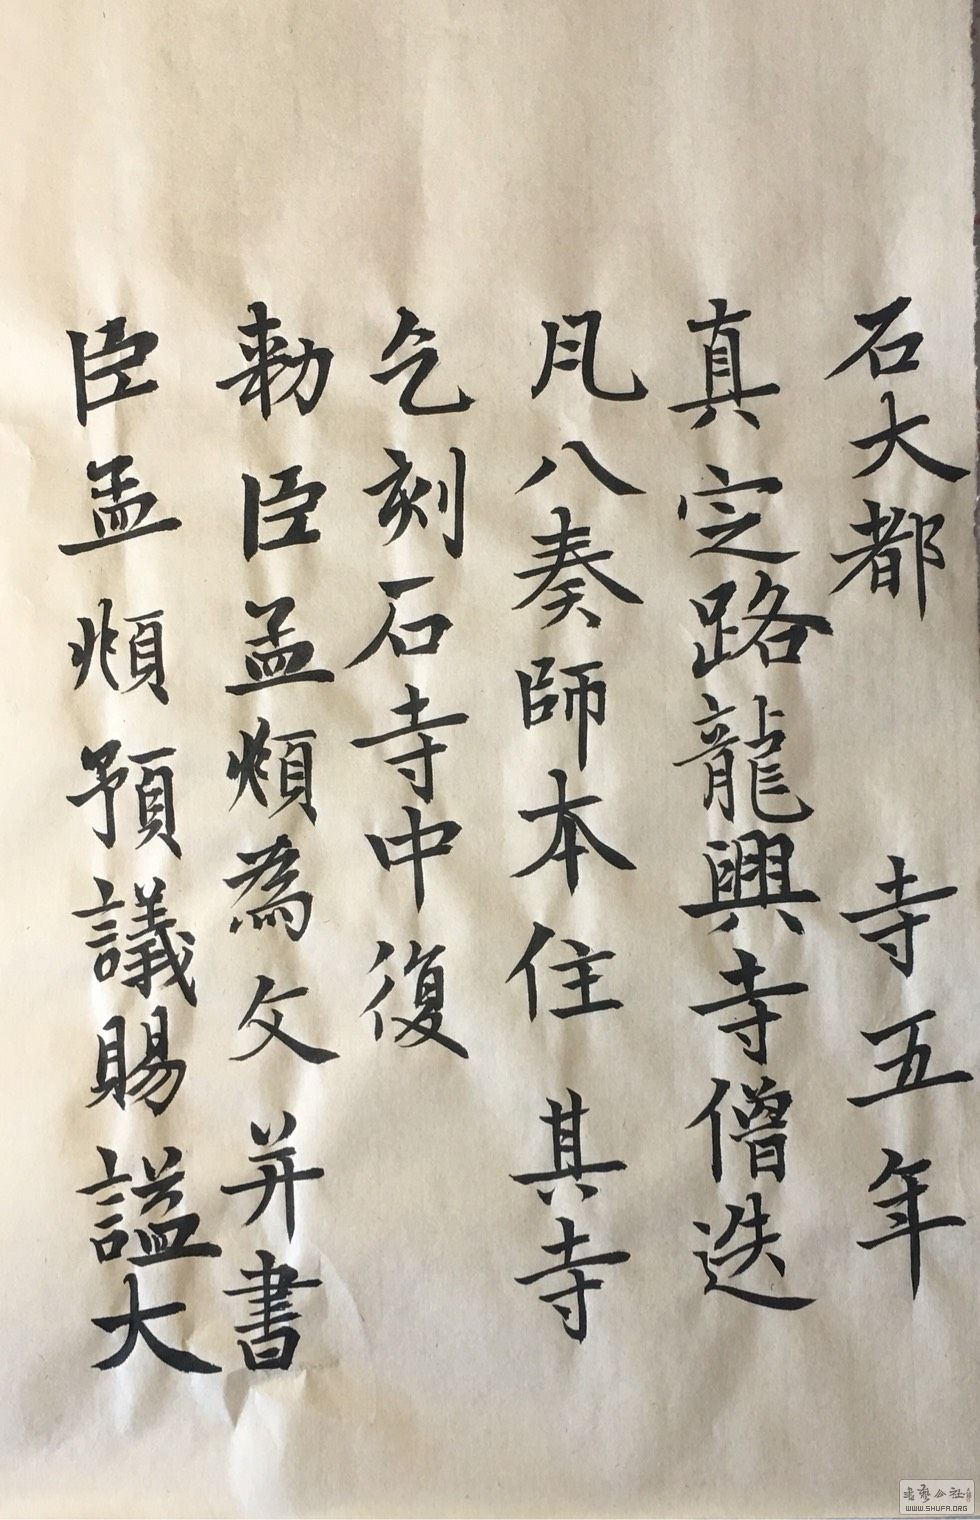 石大都　寺五年
真定路龍興寺僧迭
凡八奏師本住其寺
乞刻石寺中復
勑臣孟頫為文并書
臣孟頫預議賜謚大
書藝公社
WWW.SHUFA.ORG